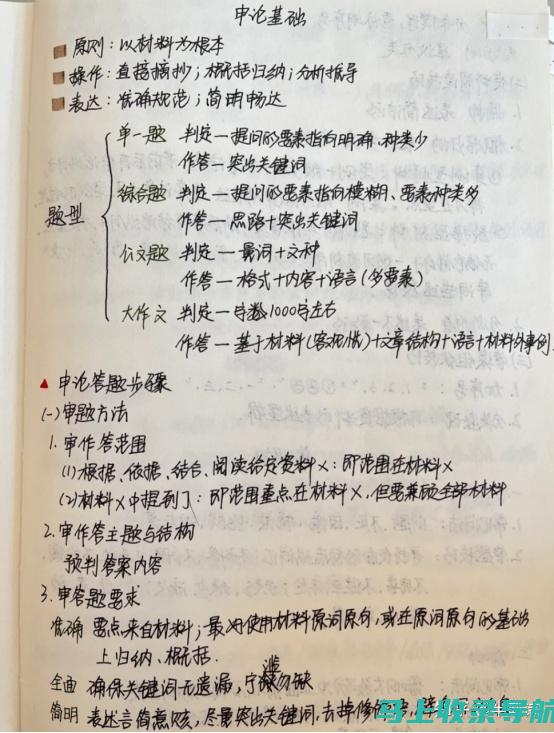 申论基础
原则：以材料为根本
操作：直接摘抄；概括归纳；分析推导
表达：准确规范；简明畅达
题型
单一题 判定—提问的要素指向明确、种类少
作答—突出关键词
综合题 判定—提问的要素指向模糊、要素种类多
作答—思路+突出关键词
公文题 判定—量词+文种
作答—格式+内容+语言(多要素)
大作文 判定—字数1000字左右
作答—基于材料(客观情)+文章结构+语言+材料的事例
▲ 申论答题步骤
(一)审题方法
1. 审作答范围
(1)根据、依据、结合、阅读给定资料X：即范围在材料X
(2)材料X中提到了：即范围重点在材料X，但要兼顾全部材料
2. 审作答主题与结构
预判答案内容
3. 审答题要求
准确 要点来自材料；最好使用材料原词原句，或在原词原句的基础
上归纳、概括.
全面 确保关键词无遗漏，宁滥勿缺
简明 表述言简意赅，尽量突出关键词，去掉修
马上收录导航